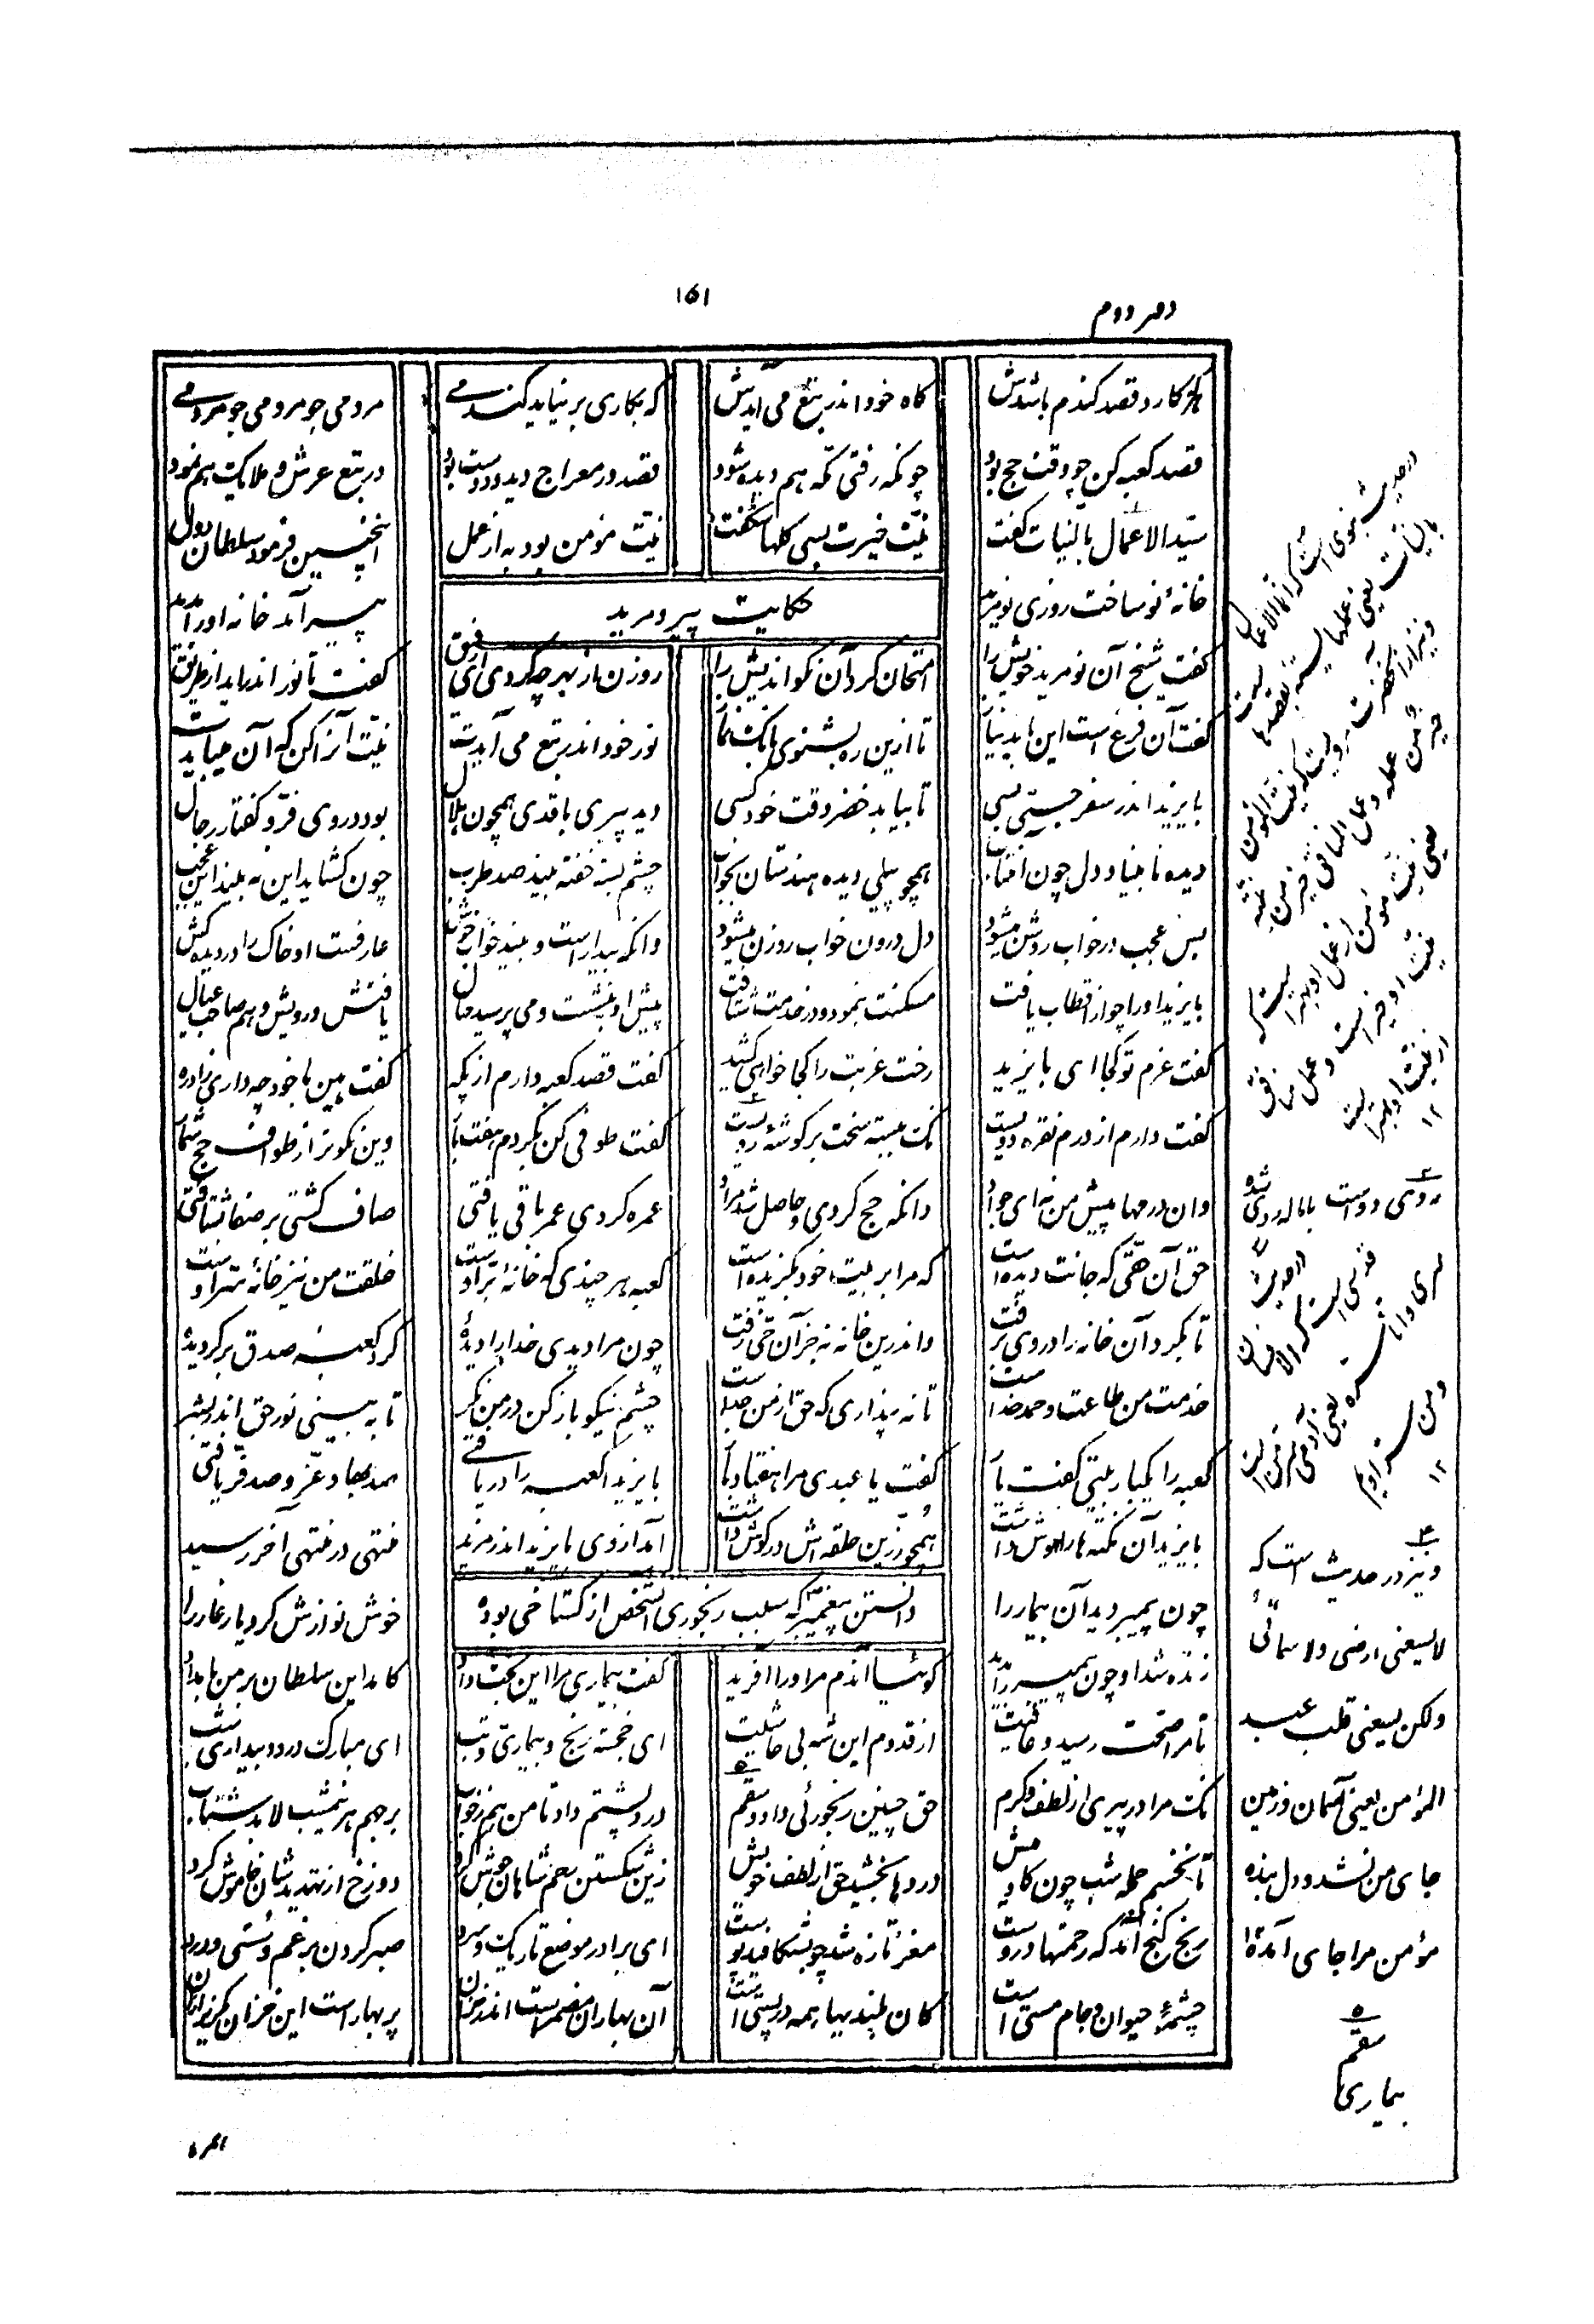 ۱۵۱
دفتر دوم
هر که کارد قصد گندم باشدش کاه خود اندر تبع می آیدش که بکاری بر نیاید گندمی مردمی جو مردمی جو مردمی
قصد کعبه کن چو وقت حج بود چونکه رفتی مکه هم دیده شود قصد در معراج دید دوست بود در تبع عرش و ملایک هم نمود
سیّد الاعمال بالنیات گفت نیّت خیرت بسی گلها شگفت نیّت مؤمن بود به از عمل اینچنین فرمود سلطان دول
حکایت پیر و مرید
خانهٔ نو ساخت روزی نو مرید پیر آمد خانه او را بدید
گفت شیخ آن نو مرید خویش را امتحان کرد آن نکو اندیش را روزن از بهر چه کردی ای رفیق گفت تا نور اندر آید از طریق
گفت آن فرع است این باید نیاز تا ازین ره بشنوی بانگ نماز نور خود اندر تبع می آیدت نیّت آنرا کن که آن میبایدت
بایزید اندر سفر جستی بسی تا بیابد خضر وقت خود کسی دید پیری با قدی همچون هلال بود در وی فرّ و گفتار رجال
دیده نابینا و دل چون آفتاب همچو پیلی دیده هندستان بخواب چشم بسته خفته بیند صد طرب چون گشاید این نه بیند این عجب
بس عجب در خواب روشن میشود دل درون خواب روزن میشود وانکه بیدار است و بیند خواب خوش عارفست او خاک را در دیده کش
بایزید او را چو از اقطاب یافت مسکنت بنمود و در خدمت شتافت پیش او بنشست و می پرسید حال یافتش درویش و هم صاحب عیال
گفت عزم تو کجا ای بایزید رخت غربت را کجا خواهی کشید گفت قصد کعبه دارم از پگه گفت هین با خود چه داری زاد ره
گفت دارم از درم نقره دویست نک ببسته سخت بر گوشهٔ ردیست گفت طوفی کن بگردم هفت بار وین نکوتر از طواف حج شمار
وان درمها پیش من نه ای جواد دانکه حج کردی و حاصل شد مراد عمره کردی عمر باقی یافتی صاف گشتی بر صفا بشتافتی
حق آن حقّی که جانت دیده است که مرا بر بیت خود بگزیده است کعبه هر چندی که خانهٔ برّ اوست خلقت من نیز خانهٔ سرّ اوست
تا بکرد آن خانه را در وی نرفت واندرین خانه بجز آن حی نرفت چون مرا دیدی خدا را دیدهٔ گرد کعبهٔ صدق بر گردیدهٔ
خدمت من طاعت و حمد خداست تا نه پنداری که حق از من جداست چشم نیکو باز کن در من نگر تا به بینی نور حق اندر بشر
کعبه را یکبار بیتی گفت یار گفت یا عبدی مرا هفتاد بار بایزیدا کعبه را دریافتی صد بها و عزّ و صد فر یافتی
بایزید آن نکته ها را هوش داشت همچو زرّین حلقه اش در گوش داشت آمد از وی بایزید اندر مزید منتهی در منتهی آخر رسید
دانستن پیغمبر که سبب رنجوری آنشخص از گستاخی بوده
چون پیمبر دید آن بیمار را خوش نوازش کرد یار غار را
زنده شد او چون پیمبر را بدید گوئیا آندم مر او را آفرید گفت بیماری مرا این بخت داد کامد این سلطان بر من بامداد
تا مرا صحّت رسید و عافیت از قدوم این شه بی حاشیت ای خجسته رنج و بیماری و تب ای مبارک درد و بیداری شب
نک مرا در پیری از لطف و کرم حق چنین رنجوریی داد و سقم درد پشتم داد تا من هم ز خواب بر جهم هر نیمشب لابد شتاب
تا نخسپم جمله شب چون گاومیش دردها بخشید حق از لطف خویش زین شکستن رحم شاهان جوش کرد دوزخ از تهدید شان خاموش کرد
رنج گنج آمد که رحمتها دروست مغز تازه شد چو بشکافید پوست ای برادر موضع تاریک و سرد صبر کردن بر غم و سستی و درد
چشمهٔ حیوان و جام مستی است کان بلندیها همه در پستی است آن بهاران مضمر است اندر خزان پر بهار است این خزان مگریز از آن
در حدیث نبوی است که انما الاعمال
بالنیات یعنی عملها بسته بقصدها است
و نیز از آنحضرت مرویست که نیت المؤمن
خیر من عمله و عمل المنافق خیر من نیته
یعنی نیت مؤمن از عمل او بهتر است
و عمل منافق
از نیت او بهتر است
۱۲
ردی ردا است با اماله روی شده
در حدیث
قدسی است که الانسان
سری و انا سره یعنی آدمی سر من است
و من سر اویم
۱۲
۴
و نیز در حدیث است که
لا یسعنی ارضی و لا سمائی
ولکن یسعنی قلب عبد
المؤمن یعنی آسمان و زمین
جای من نشد و دل بنده
مؤمن مرا جای آمده
۵
سقم
بیماری